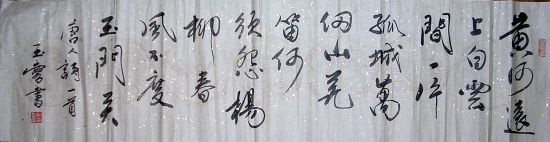 黄河遠
上白雲
間一片
孤城萬
仞山羌
笛何
須怨楊
柳春
風不度
玉門关
唐人詩一首
玉書